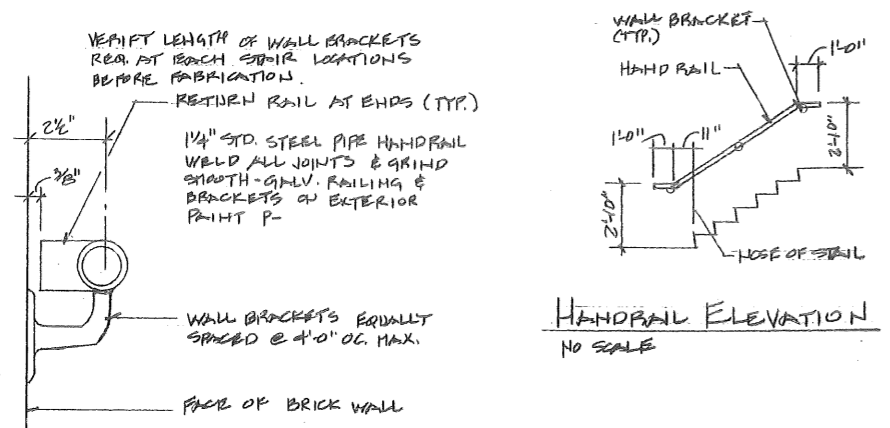 VERIFY LENGTH OF WALL BRACKETS
REQ. AT EACH STAIR LOCATIONS
BEFORE FABRICATION.
RETURN RAIL AT ENDS (TYP.)
2½"
3/8"
1¼" STD. STEEL PIPE HANDRAIL
WELD ALL JOINTS & GRIND
SMOOTH-GALV. RAILING &
BRACKETS ON EXTERIOR
PAINT P-
WALL BRACKETS EQUALLY
SPACED @ 4'0" OC. MAX.
FACE OF BRICK WALL
WALL BRACKET
(TYP.)
HAND RAIL
1'0"
1'0"
11"
2'10"
2'10"
NOSE OF STAIR
HANDRAIL ELEVATION
NO SCALE